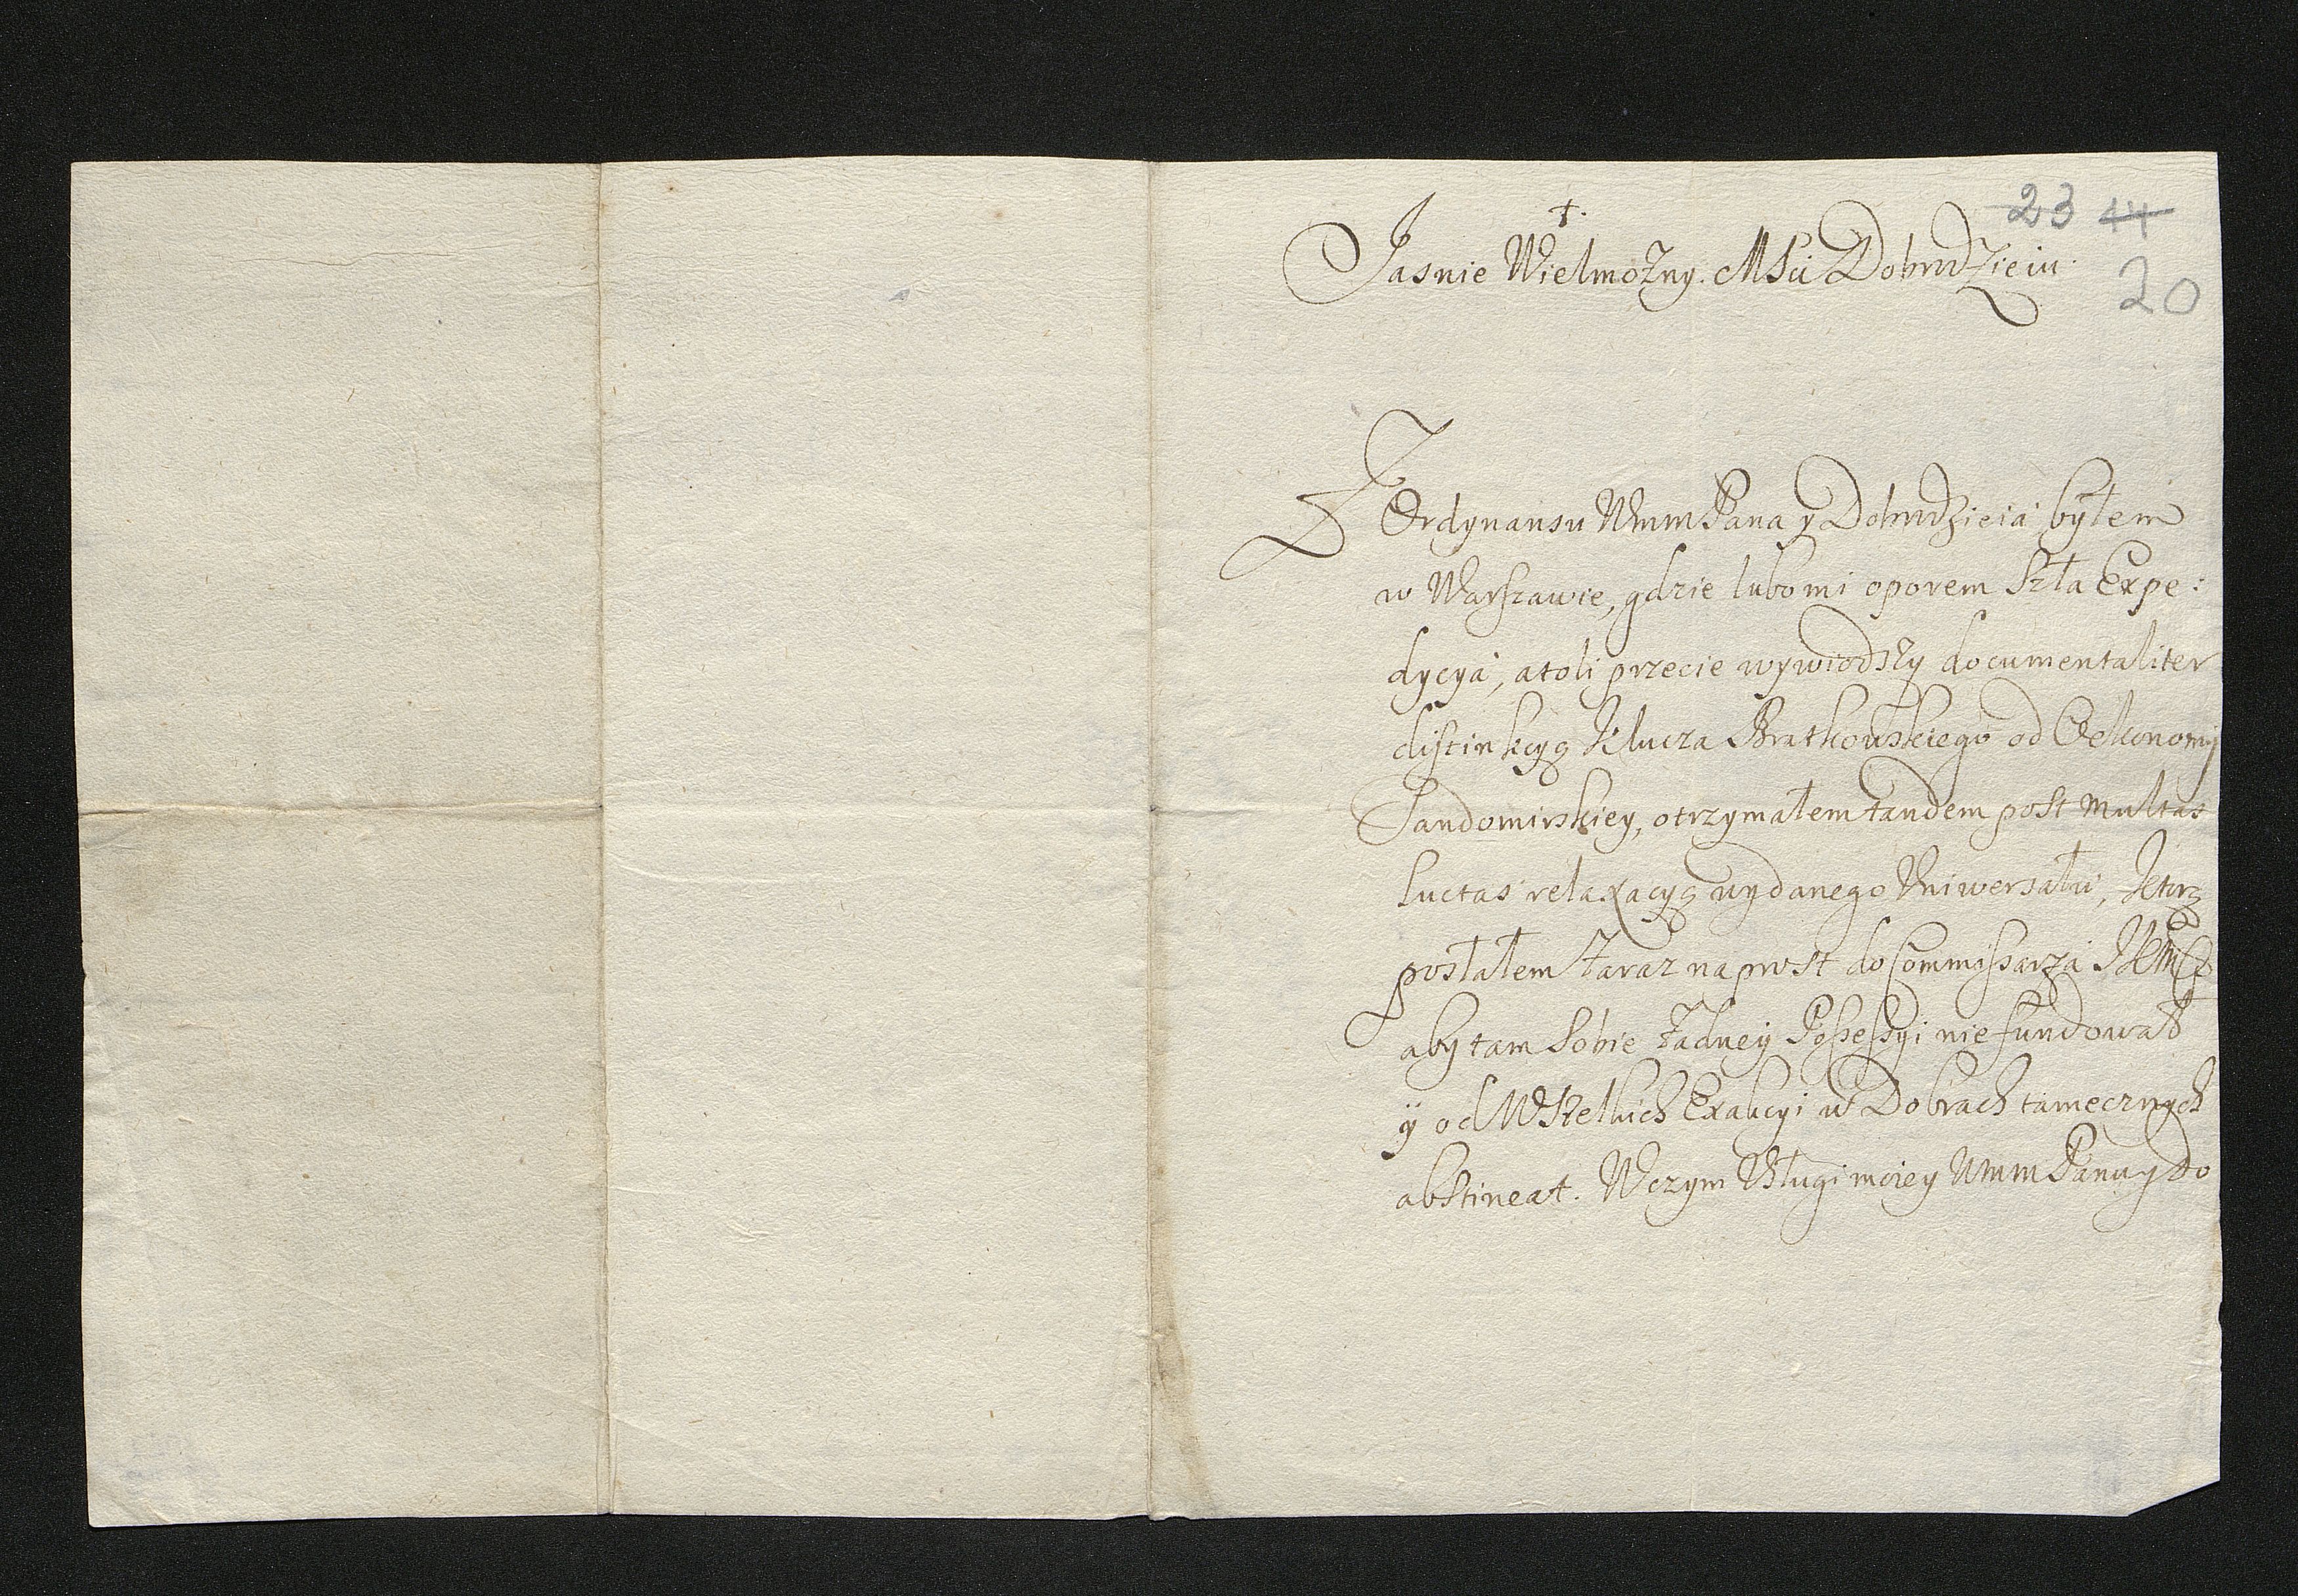 23 44
†.
Jasnie Wielmożny. MSci Dobrodzieiu.
20
Z Ordynansu Wmm Pana y Dobrodzieia byłem
w Warszawie, gdzie lubo mi oporem szła Expe:
dycya, atoli przecie wywiodszy documentaliter
distinkcyą Klucza Bratkowskiego od Oekonomij
Sandomirskiey, otrzymałem tandem post multas
luctas relaxacyą wydanego Vniwersału, ktorą
posłałem zaraz na prost do Commissarza
aby tam sobie żadney Possessyi nie fundował
ÿ od Wszelkich Exakcyi w Dobrach tamecznych
abstineat. W czym Vsługi moiey Wmm Panu y do